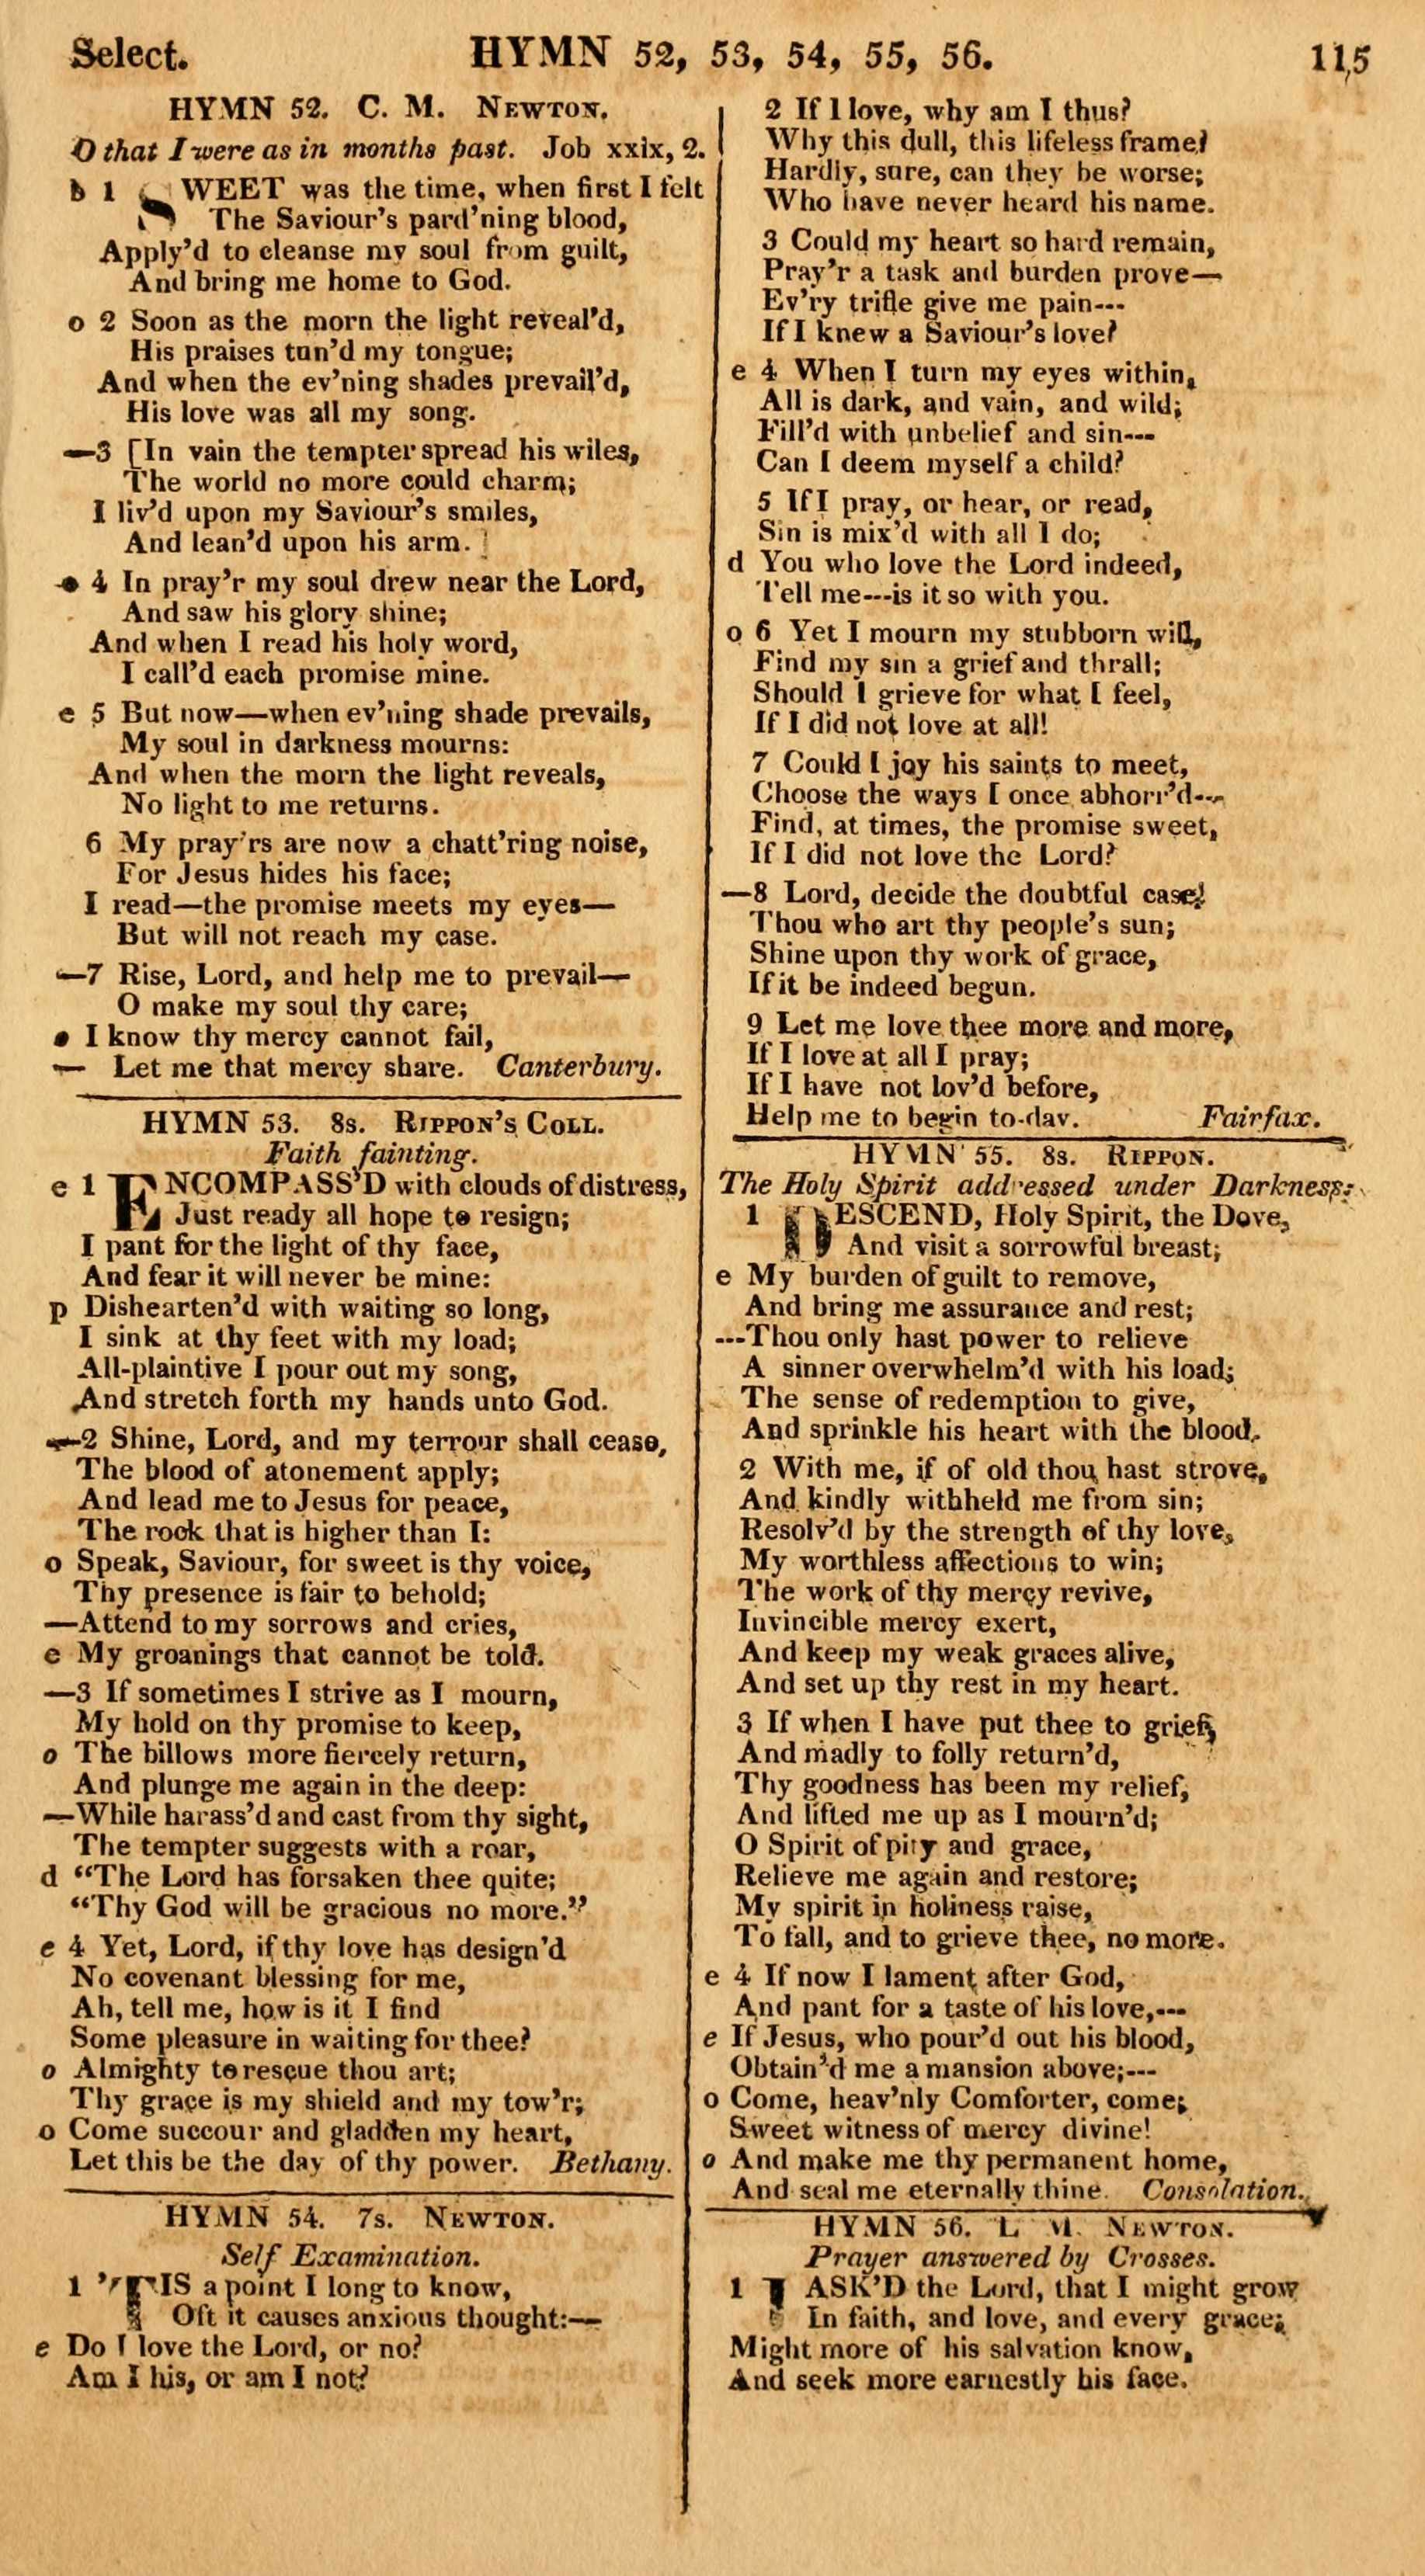 Select.
HYMN 52, 53, 54, 55, 56.
115
HYMN 52. C. M. NEWTON.
O that I were as in months past. Job xxix, 2.
b 1 SWEET was the time, when first I felt
The Saviour's pard'ning blood,
Apply'd to cleanse my soul from guilt,
And bring me home to God.
o 2 Soon as the morn the light reveal'd,
His praises tun'd my tongue;
And when the ev'ning shades prevail'd,
His love was all my song.
—3 [In vain the tempter spread his wiles,
The world no more could charm;
I liv'd upon my Saviour's smiles,
And lean'd upon his arm.]
e 4 In pray'r my soul drew near the Lord,
And saw his glory shine;
And when I read his holy word,
I call'd each promise mine.
e 5 But now—when ev'ning shade prevails,
My soul in darkness mourns:
And when the morn the light reveals,
No light to me returns.
6 My pray'rs are now a chatt'ring noise,
For Jesus hides his face;
I read—the promise meets my eyes—
But will not reach my case.
—7 Rise, Lord, and help me to prevail—
O make my soul thy care;
e I know thy mercy cannot fail,
— Let me that mercy share. Canterbury.
HYMN 53. 8s. RIPPON'S COLL.
Faith fainting.
e 1 ENCOMPASS'D with clouds of distress,
Just ready all hope to resign;
I pant for the light of thy face,
And fear it will never be mine:
p Dishearten'd with waiting so long,
I sink at thy feet with my load;
All-plaintive I pour out my song,
And stretch forth my hands unto God.
—2 Shine, Lord, and my terrour shall cease,
The blood of atonement apply;
And lead me to Jesus for peace,
The rock that is higher than I:
o Speak, Saviour, for sweet is thy voice,
Thy presence is fair to behold;
—Attend to my sorrows and cries,
e My groanings that cannot be told.
—3 If sometimes I strive as I mourn,
My hold on thy promise to keep,
o The billows more fiercely return,
And plunge me again in the deep:
—While harass'd and cast from thy sight,
The tempter suggests with a roar,
d "The Lord has forsaken thee quite;
"Thy God will be gracious no more."
e 4 Yet, Lord, if thy love has design'd
No covenant blessing for me,
Ah, tell me, how is it I find
Some pleasure in waiting for thee?
o Almighty to rescue thou art;
Thy grace is my shield and my tow'r;
o Come succour and gladden my heart,
Let this be the day of thy power. Bethany.
HYMN 54. 7s. NEWTON.
Self Examination.
1 'TIS a point I long to know,
Oft it causes anxious thought:—
e Do I love the Lord, or no?
Am I his, or am I not?
2 If I love, why am I thus?
Why this dull, this lifeless frame?
Hardly, sure, can they be worse;
Who have never heard his name.
3 Could my heart so hard remain,
Pray'r a task and burden prove—
Ev'ry trifle give me pain---
If I knew a Saviour's love?
e 4 When I turn my eyes within,
All is dark, and vain, and wild;
Fill'd with unbelief and sin---
Can I deem myself a child?
5 If I pray, or hear, or read,
Sin is mix'd with all I do;
d You who love the Lord indeed,
Tell me---is it so with you.
o 6 Yet I mourn my stubborn will,
Find my sin a grief and thrall;
Should I grieve for what I feel,
If I did not love at all!
7 Could I joy his saints to meet,
Choose the ways I once abhorr'd---
Find, at times, the promise sweet,
If I did not love the Lord?
—8 Lord, decide the doubtful case!
Thou who art thy people's sun;
Shine upon thy work of grace,
If it be indeed begun.
9 Let me love thee more and more,
If I love at all I pray;
If I have not lov'd before,
Help me to begin to-day. Fairfax.
HYMN 55. 8s. RIPPON.
The Holy Spirit addressed under Darkness.
1 DESCEND, Holy Spirit, the Dove,
And visit a sorrowful breast;
e My burden of guilt to remove,
And bring me assurance and rest;
---Thou only hast power to relieve
A sinner overwhelm'd with his load;
The sense of redemption to give,
And sprinkle his heart with the blood.
2 With me, if of old thou hast strove,
And kindly withheld me from sin;
Resolv'd by the strength of thy love,
My worthless affections to win;
The work of thy mercy revive,
Invincible mercy exert,
And keep my weak graces alive,
And set up thy rest in my heart.
3 If when I have put thee to grief,
And madly to folly return'd,
Thy goodness has been my relief,
And lifted me up as I mourn'd;
O Spirit of pity and grace,
Relieve me again and restore;
My spirit in holiness raise,
To fall, and to grieve thee, no more.
e 4 If now I lament after God,
And pant for a taste of his love,---
e If Jesus, who pour'd out his blood,
Obtain'd me a mansion above;---
o Come, heav'nly Comforter, come;
Sweet witness of mercy divine!
o And make me thy permanent home,
And seal me eternally thine. Consolation.
HYMN 56. L. M. NEWTON.
Prayer answered by Crosses.
1 I ASK'D the Lord, that I might grow
In faith, and love, and every grace;
Might more of his salvation know,
And seek more earnestly his face.